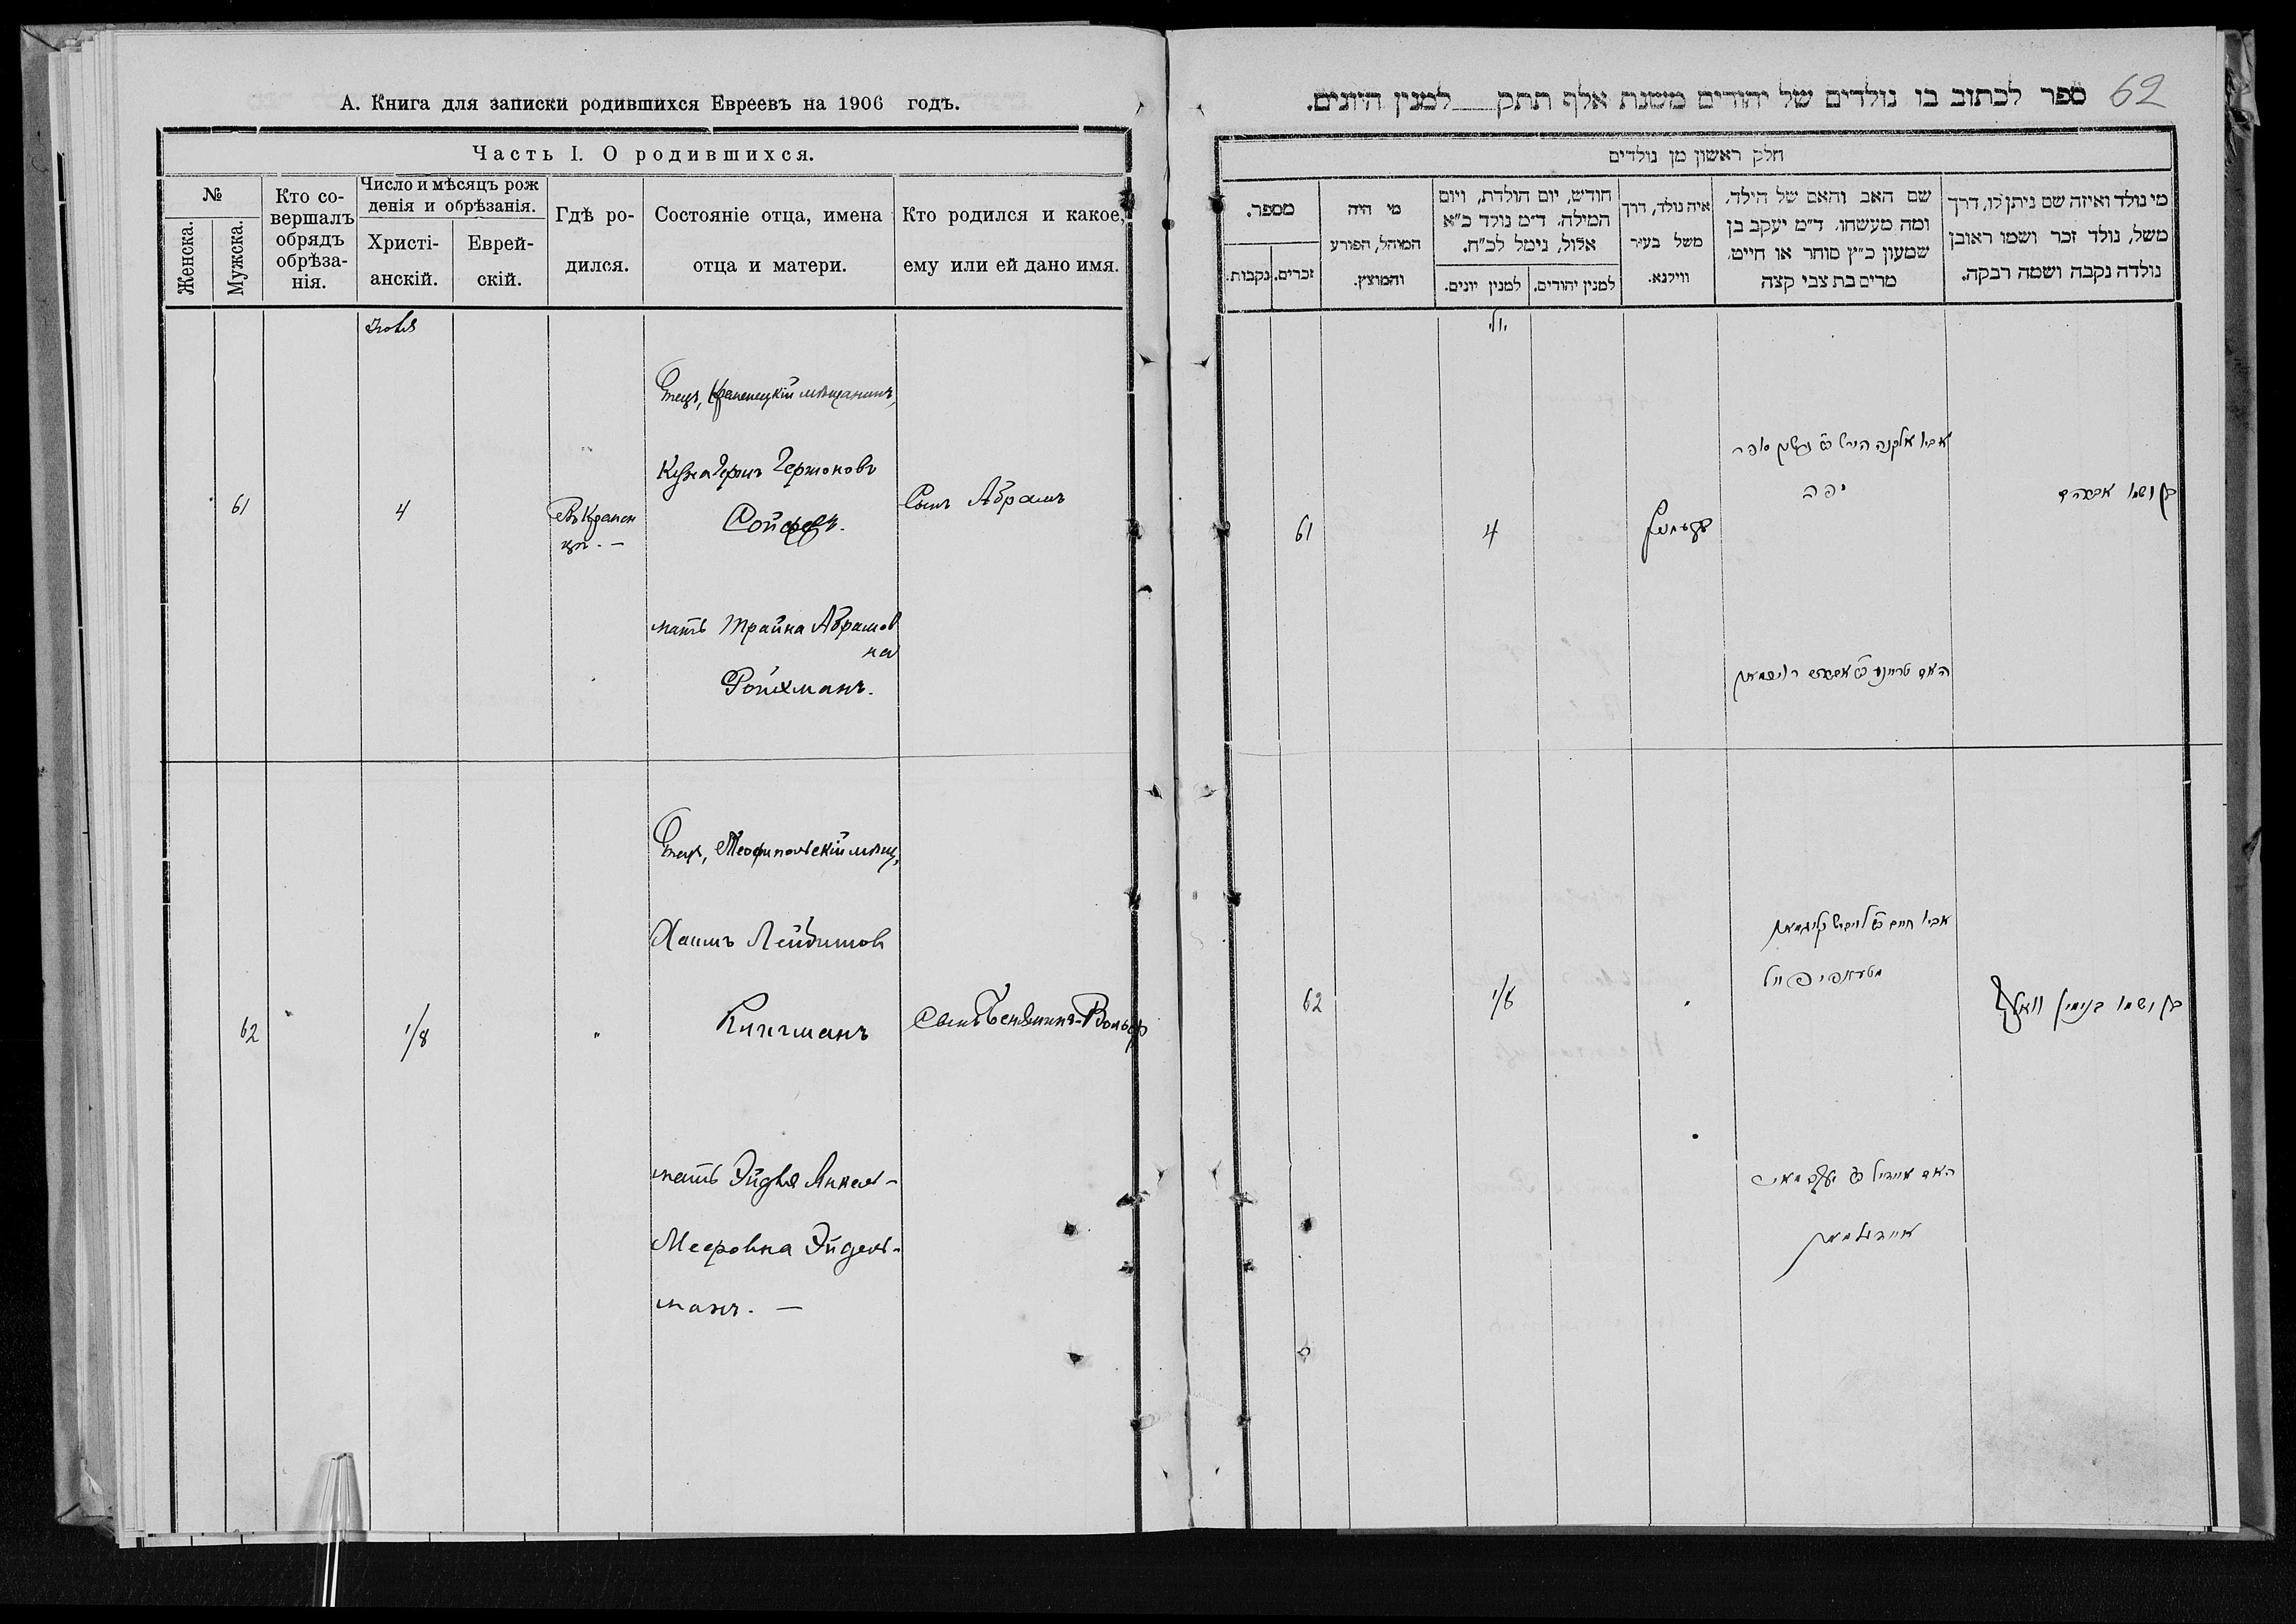 А. Книга для записки родившихся Евреевъ на 1906 годъ.
Часть I. О родившихся.
№
Женска.
Мужска.
Кто со-
вершалъ
обрядъ
обрѣза-
нія.
Число и мѣсяцъ рож
денія и обрѣзанія.
Христі-
анскій.
Еврей-
скій.
Гдѣ ро-
дился.
Состояніе отца, имена
отца и матери.
Кто родился и какое,
ему или ей дано имя.
Отецъ, Кременецкій мѣщанинъ,
Гершковъ
61
4
Въ Кремен
цѣ. —
Сойферъ.
Сынъ Абрамъ
мать Трайна Абрамов
на
Ройхманъ.
Отецъ, Теофипольскій мѣщ,
Хаимъ Лейбишов
62
1/8
"
Клигманъ
Сынъ Беньяминъ-Вольф
мать Эйдля Анкель-
Мееровна Эйдель-
манъ. —
62
ספר לכתוב בו נולדים של יהודים משנת אלף תתק למנין היונים.
חלק ראשון מן נולדים
מספר.
נקבות.
זכרים.
מי היה
המוהל, הפורע
והמוצץ.
חודש, יום הולדת, ויום
המילה. ד״מ נולד כ״א
אלול, נימל לכ״ח.
למנין יונים.
למנין יהודים.
איה נולד, דרך
משל בעיר
ווילנא.
שם האב והאם של הילד,
ומה מעשהו. ד״מ יעקב בן
שמעון כ״ץ סוחר או חייט.
מרים בת צבי קצה
מי נולד ואיזה שם ניתן לו, דרך
משל, נולד זכר ושמו ראובן
נולדה נקבה ושמה רבקה.
יולי
אביו אלקנה הירש סופר
יפה
בן ושמו אברהם
61
4
האם טריינא אברהם רויכמאן
אביו חיים
62
1/8
בן ושמו בנימין וואלף
האם איידיל יעקב מאיר
איידעלמאן